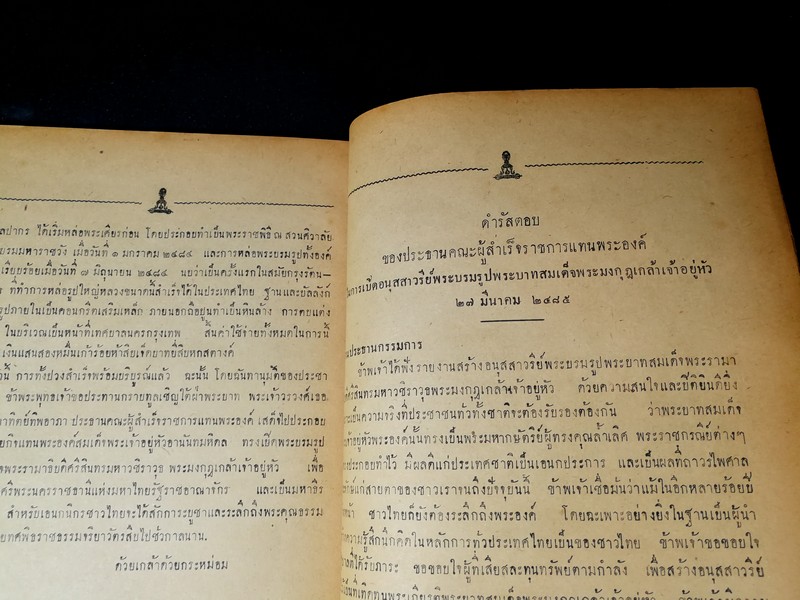 ลปากร ได้เริ่มหล่อพระเศียรก่อน โดยประกอบทำเป็นพระราชพิธี ณ สวนศิวาลัย
บรมมหาราชวัง เมื่อวันที่ ๑ มกราคม ๒๔๘๔ และการหล่อพระบรมรูปทั้งองค์
เรียบร้อยเมื่อวันที่ ๗ มิถุนายน ๒๔๘๔ นับว่าเป็นครั้งแรกในสมัยกรุงรัตน-
ที่ทำการหล่อรูปใหญ่หลวงขนาดนี้สำเร็จได้ในประเทศไทย ฐานและบัลลังก์
รูปภายในเป็นคอนกรีตเสริมเหล็ก ภายนอกถือปูนทำเป็นหินล้าง การตบแต่ง
ในบริเวณเป็นหน้าที่เทศบาลนครกรุงเทพ สิ้นค่าใช้จ่ายทั้งหมดในการนี้
เงินแสนสองหมื่นเก้าร้อยห้าสิบเอ็ดบาทยี่สิบหกสตางค์
การทั้งปวงสำเร็จพร้อมบริบูรณ์แล้ว ฉะนั้น โดยฉันทานุมัติของประชา
ข้าพระพุทธเจ้าขอประทานกราบทูลเชิญใต้ฝ่าพระบาท พระเจ้าวรวงศ์เธอ
าทิตย์ทิพอาภา ประธานคณะผู้สำเร็จราชการแทนพระองค์ เสด็จไปประกอบ
กิจแทนพระองค์สมเด็จพระเจ้าอยู่หัวอานันทมหิดล ทรงเปิดพระบรมรูป
พระรามาธิบดีศรีสินทรมหาวชิราวุธ พระมงกุฎเกล้าเจ้าอยู่หัว เพื่อ
ศรีพระนครราชธานีแห่งมหาไทยรัฐราชอาณาจักร และเป็นมหาธีร
สำหรับเอนกนิกรชาวไทยจะได้สักการะบูชาและระลึกถึงพระคุณธรรม
ทศพิธราชธรรมจริยาวัตรสืบไปชั่วกาลนาน.
ด้วยเกล้าด้วยกระหม่อม
ดำรัสตอบ
ของประธานคณะผู้สำเร็จราชการแทนพระองค์
ในการเปิดอนุสสาวรีย์พระบรมรูปพระบาทสมเด็จพระมงกุฎเกล้าเจ้าอยู่หัว
๒๗ มีนาคม ๒๔๘๕
นประธานกรรมการ
ข้าพเจ้าได้ฟังรายงานสร้างอนุสสาวรีย์พระบรมรูปพระบาทสมเด็จพระรามา
ศรีสินทรมหาวชิราวุธพระมงกุฎเกล้าเจ้าอยู่หัว ด้วยความสนใจและปีติยินดียิ่ง
เป็นความจริงที่ประชาชนทั่วทั้งชาติจะต้องรับรองต้องกัน ว่าพระบาทสมเด็จ
เจ้าอยู่หัวพระองค์นั้นทรงเป็นพระมหากษัตริย์ผู้ทรงคุณล้ำเลิศ พระราชกรณีย์ต่างๆ
ประกอบทำไว้ มีผลดีแก่ประเทศชาติเป็นเอนกประการ และเป็นผลที่ถาวรไพศาล
แก่สายตาของชาวเราจนถึงปัจจุบันนี้ ข้าพเจ้าเชื่อมั่นว่าแม้ในอีกหลายร้อยปี
หน้า ชาวไทยก็ยังต้องระลึกถึงพระองค์ โดยฉะเพาะอย่างยิ่งในฐานเป็นผู้นำ
ความรู้สึกนึกคิดในหลักการทั่วประเทศไทยเป็นของชาวไทย ข้าพเจ้าขอขอบใจ
ที่ได้รับภาระ ขอขอบใจผู้ที่เสียสละทุนทรัพย์ตามกำลัง เพื่อสร้างอนุสสาวรีย์
นที่เทิดทูนพระเกียรติพระบาทสมเด็จพระมงกุฎเกล้าเจ้าอยู่หัว